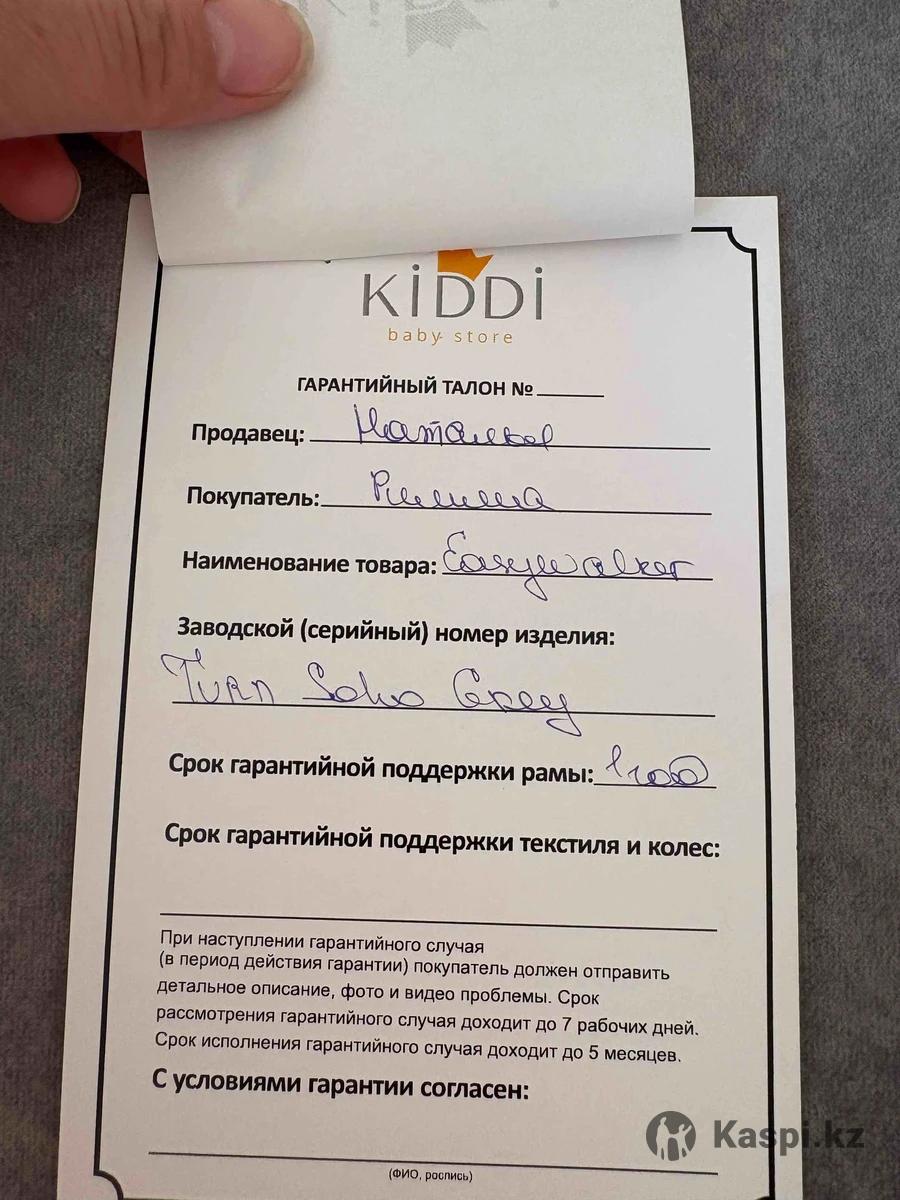 KiDDi
baby store
ГАРАНТИЙНЫЙ ТАЛОН № ______
Продавец: Наталья
Покупатель: Римма
Наименование товара: Easywalker
Заводской (серийный) номер изделия:
Turn Soho Grey
Срок гарантийной поддержки рамы: 1 год
Срок гарантийной поддержки текстиля и колес:
При наступлении гарантийного случая
(в период действия гарантии) покупатель должен отправить
детальное описание, фото и видео проблемы. Срок
рассмотрения гарантийного случая доходит до 7 рабочих дней.
Срок исполнения гарантийного случая доходит до 5 месяцев.
С условиями гарантии согласен:
(ФИО, роспись)
Kaspi.kz